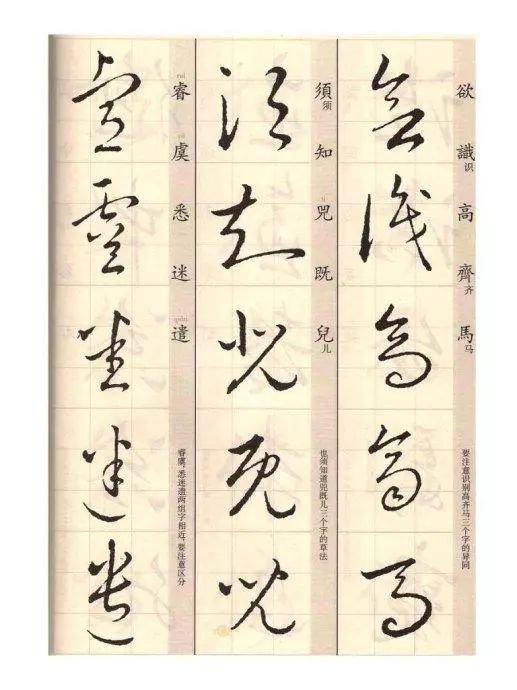 欲識高齊馬
欲識识高齊齐馬马
要注意识别高齐马三个字的异同
須知兕既兒
須须知兕既兒儿
也须知道兕既儿三个字的草法
睿虞悉迷遣
睿虞悉迷遣
睿虞，悉迷遣两组字相近，要注意区分